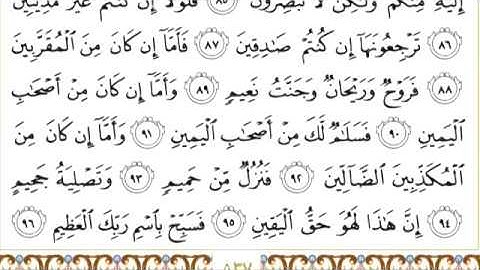 إِلَيْهِ مِنكُمْ وَلَٰكِن لَّا تُبْصِرُونَ ٨٥ فَلَوْلَا إِن كُنتُمْ غَيْرَ مَدِينِينَ
٨٦ تَرْجِعُونَهَا إِن كُنتُمْ صَادِقِينَ ٨٧ فَأَمَّا إِن كَانَ مِنَ الْمُقَرَّبِينَ
٨٨ فَرَوْحٌ وَرَيْحَانٌ وَجَنَّتُ نَعِيمٍ ٨٩ وَأَمَّا إِن كَانَ مِنْ أَصْحَابِ
الْيَمِينِ ٩٠ فَسَلَامٌ لَّكَ مِنْ أَصْحَابِ الْيَمِينِ ٩١ وَأَمَّا إِن كَانَ مِنَ
الْمُكَذِّبِينَ الضَّالِّينَ ٩٢ فَنُزُلٌ مِّنْ حَمِيمٍ ٩٣ وَتَصْلِيَةُ جَحِيمٍ
٩٤ إِنَّ هَٰذَا لَهُوَ حَقُّ الْيَقِينِ ٩٥ فَسَبِّحْ بِاسْمِ رَبِّكَ الْعَظِيمِ ٩٦
٨٣٧